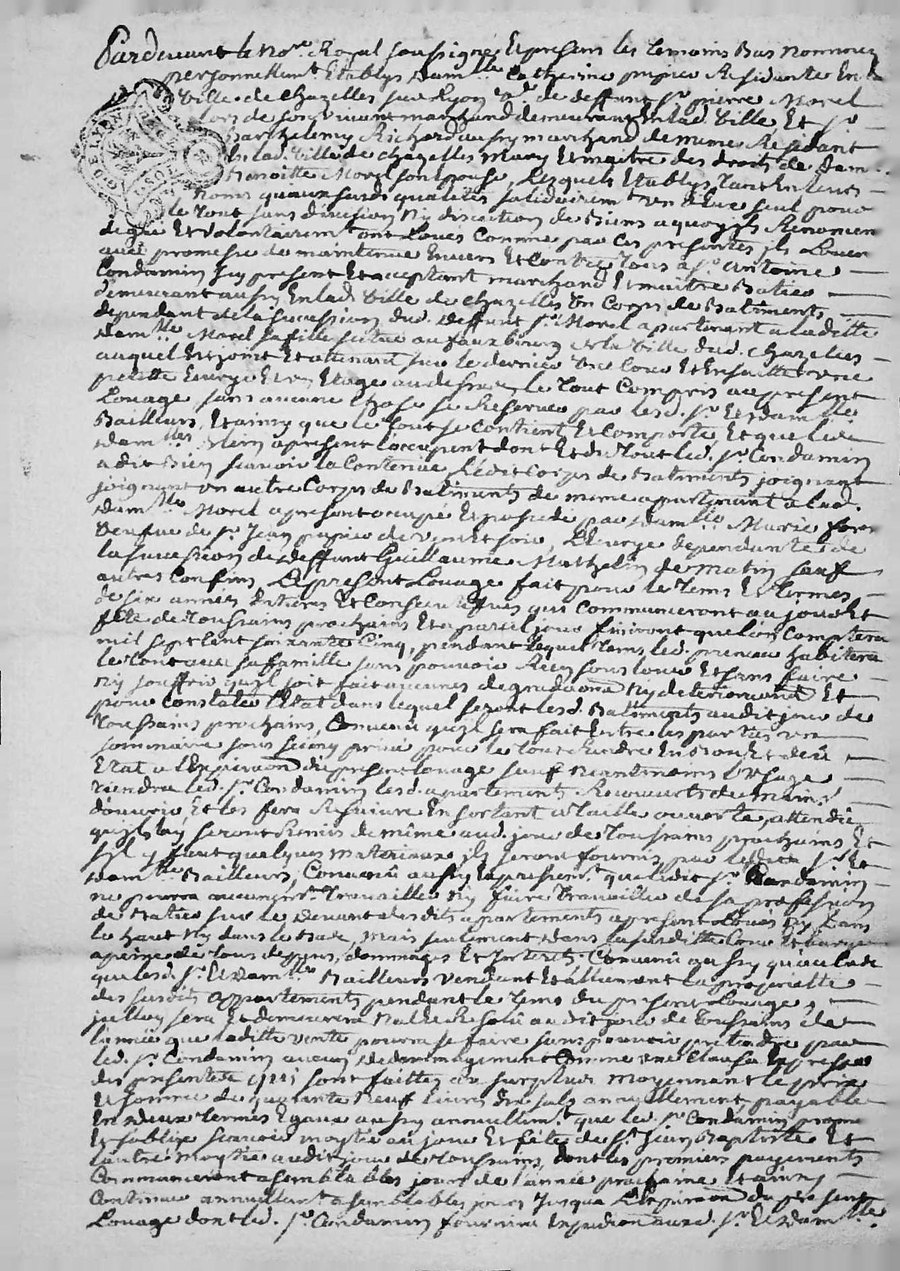 Pardevant le Nore. Royal soussigné Et presens les temoins Bas nommez
personnellemt. Etablys dam.lle Catherine pupier Residante En la
Ville de Chazelles sur Lyon vve. de deffunt Sr. pierre Morel
lors de son vivant marchand demeurant En lad. Ville, Et Sr.
Barthelemy Richard aussy marchand de meme Residant
En lad. Ville de Chazelles mary Et maitre des droits de dam.
Morel son Epouse, Lesquels Etablys tant En leurs
noms quaux susd. qualités solidairemt. L'un d'Eux seul pour
le tout sans division Ny discution de Biens a quoy ils Renoncent
de gré Et volontairemt. ont Loués Comme par Ces presentes ils Louent
avec promesse de maintenue Envers Et Contre tous a Sr. Antoine
Condamin Icy present Et acceptant marchand Et maitre Batier
demeurant aussy En lad. Ville de Chazelles Un Corps de Batiments
dependant de la succession dud. deffunt Sr. Morel apartenant a laditte
dam.lle Morel sa fille située au fauxbourg de la Ville dud. Chazelles
auquel Est joint Et attenant sur le derrier Une Cour Et Ensuitte une
petitte Ecurye Et un Etage au dessus, le tout Compris au present
Louage, sans aucune Chose se Reserver par lesd. Sr. Et dam.lle
Bailleurs, Et ainsy que le tout se Contient Et Comporte, Et que lesd.
dam.lles a present l'occupent dont Et du tout led. Sr. Condamin
a dit Bien sçavoir la Contenue, Ledit Corps de Batiments joignant
joignant un autre Corps de Batiments de meme apartenant a lad.
dam.lle Morel a present occupé Et possedé par dam.lle Marie
Veufve de Sr. Jean pupier de vent Et soir, L'Ecurye dependante de
la succession de deffunt Guillaume Mathelin de matin sauf
autres Confins, Le present Louage fait pour le tems Et termes
de six années Entieres Et Consecutives qui Commenceront au jour Et
fête de Toussains prochains Et a pareil jour finiront que l'on Comptera
mil sept Cent soixante Cinq, pendant lequel tems led. preneur habitera
le tout avec sa famille sans pouvoir Rien sous louer Et sans faire
ny souffrir qu'il soit fait aucunes degradaons. Ny deteriorations Et
pour Constater l'Etat dans lequel seront lesd. Batiments audit jour de
Toussains prochains, Convenu qu'il sera fait Entre les parties un
sommaire sous seing privé pour le tout Rendre En Bon Et deü
Etat a l'Expiraon. du present Louage sauf neantmoins L'usage
tiendra led. Sr. Condamin lesd. apartements Recouverts de main
d'ouvrier Et les fera Resuivre En sortant a taille ouverte attendu
qu'ils luy seront Remis de même aud. jour de Toussains prochains Et
s'il y faut quelques materiaux ils seront fournis par lesdits Sr. Et
dam.lle Bailleurs, Convenû aussy Expressemt. que ledit Sr. Condamin
ne pourra aucunemt. Travailler Ny faire Travailler de sa profession
de Batier sur le devant desdits apartements a present Loués Ny Dans
le haut Ny dans le Bas, mais seulement dans la susditte Cour Et Ecurye
a peine de tous depens, dommages Et Interets. Convenû aussy qu'au Cas
que lesd. Sr. Et dam.lle Bailleurs vendent Et allienent la proprietté
des susdits Appartements pendant le tems du present Louage,
jcelluy sera Et demeurera Nul Et Resolû audit jour de Toussains de
l'année que laditte vente pourra se faire sans pouvoir pretendre par
led. Sr. Condamin aucun dedommagement Comme une Clause Expresse
des presentes qui sont faittes au surplus moyennant le prix
Et somme de quarante neuf livres dix sols annuellement payable
En deux termes Egaux aussy annuellemt. que led. Sr. Condamin promet
Et s'oblige sçavoir moytié au jour Et fête de St. Jean Baptiste Et
l'autre moytié audit jour de Toussains, dont les premiers payements
Commenceront a semblables jours de l'année prochaine Et ainsy
Continuer annuellemt. a semblables jours jusqu'a L'Expiraon. du present
Louage dont led. Sr. Condamin fournira Expedion. auxd. Sr. Et dam.lle